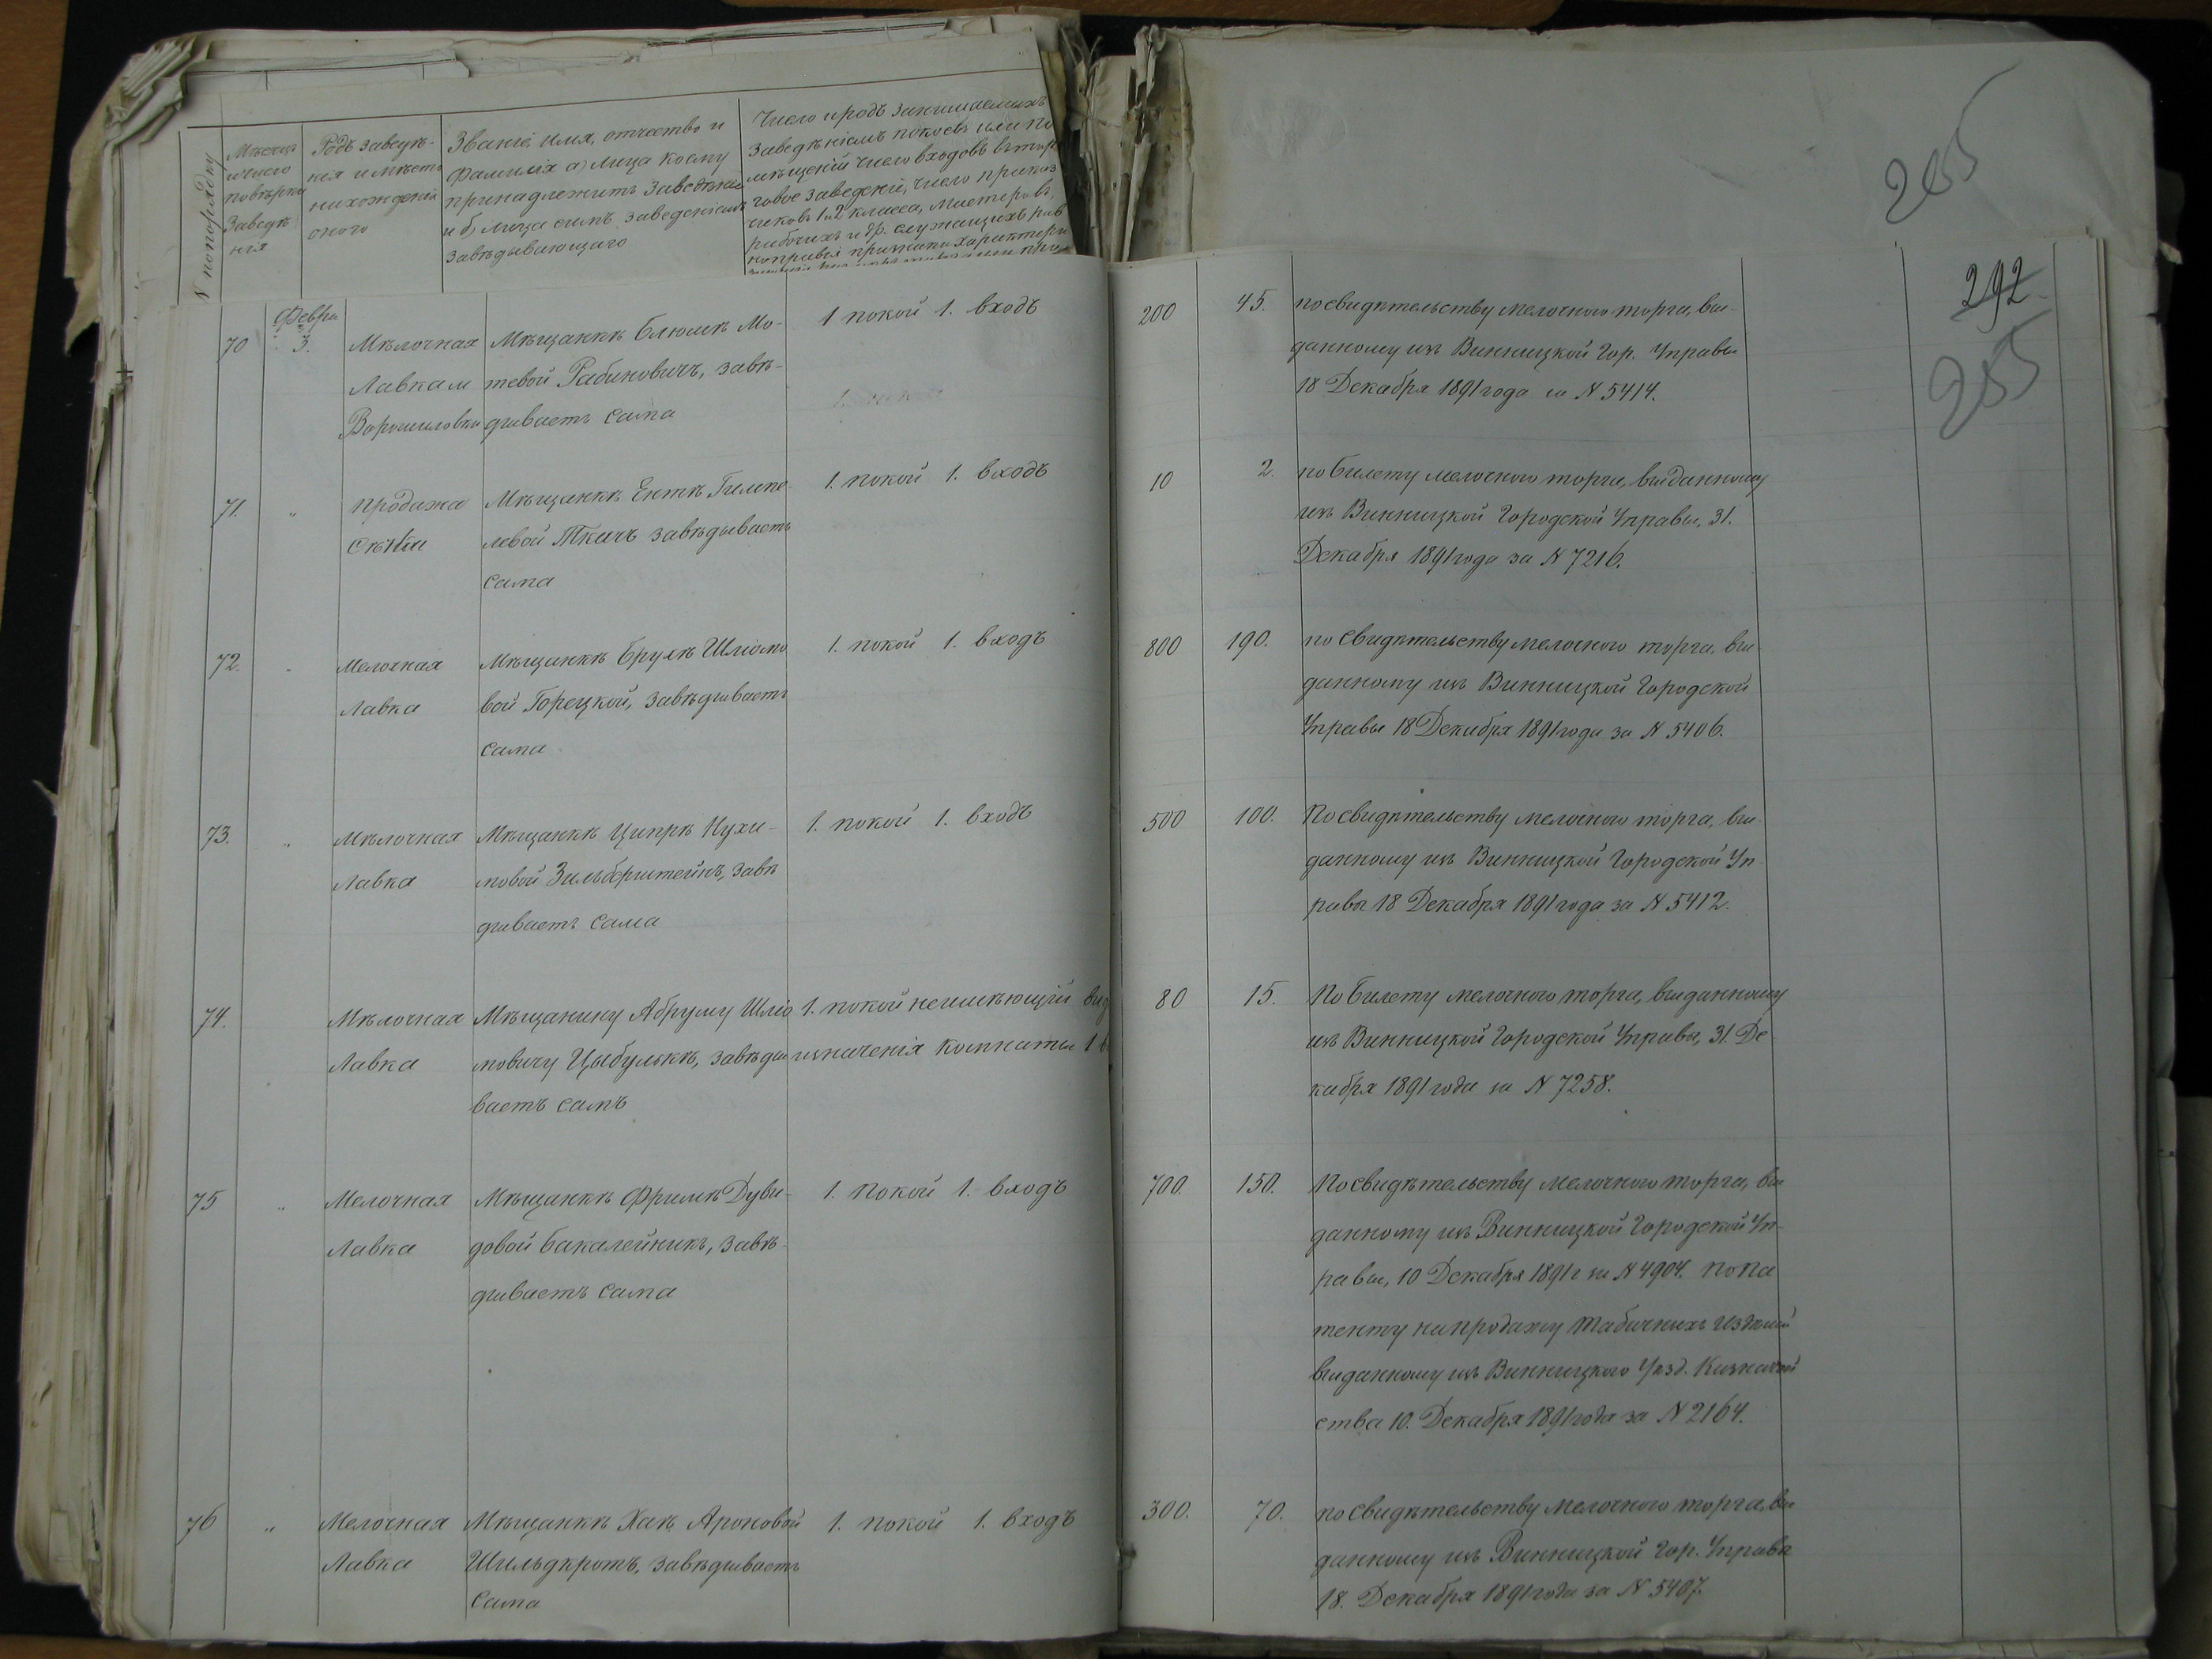 255
292
255
N попорядку
Мѣсяцъ
и число
повѣрки
Заведѣ
нія
Родъ заведѣ-
нія и мѣсто
нахожденія
онаго
Званіе, имя, отчество и
фамилія а) лица коему
принадлежитъ заведѣніе
и б) лица симъ заведеніемъ
завѣдывающаго
Число и родъ занимаемыхъ
заведѣніемъ покоевъ или по
мѣщеній число входовъ въ тор
говое заведеніе, число приказ
чиковъ 1 и 2 класса, мастеровъ,
рабочихъ и др. служащихъ рав
70
Февра
3.
Мѣлочная
Лавка м
Ворошиловки
Мѣщанкѣ Блюмѣ Мо-
тевой Рабиновичъ, завѣ-
дываетъ сама
1 покой 1. входъ
200
45.
по свидѣтельству мелочного торга, вы-
данному изъ Винницкой Гор. Управы
18 Декабря 1891 года за N 5414.
71.
"
продажа
Сѣна
Мѣщанкѣ Енткѣ Гилпе-
левой Ткачъ завѣдываетъ
сама
1. покой 1. входъ
10
2.
по билету мелочного торга, выданному
изъ Винницкой Городской Управы, 31.
Декабря 1891 года за N 7216.
72.
"
Мелочная
Лавка
Мѣщанкѣ Брухѣ Шлiомо
вой Горецкой, завѣдываетъ
сама
1. покой 1. входъ
800
190.
по свидѣтельству мелочного торга, вы-
данному изъ Винницкой Городской
Управы 18 Декабря 1891 года за N 5406.
73.
"
Мѣлочная
Лавка
Мѣщанкѣ Ципрѣ Нухи-
мовой Зильберштейнъ, завѣ
дываетъ сама
1. покой 1. входъ
500
100.
По свидѣтельству мелочного торга, вы-
данному изъ Винницкой Городской Уп-
равы 18 Декабря 1891 года за N 5412.
74.
Мѣлочная
Лавка
Мѣщанину Абруму Шлiо
мовичу Цыбулькѣ, завѣды
ваетъ самъ
1. покой неимѣющій вид
изначенія комнаты 1 в
80
15.
По билету мелочного торга, выданному
изъ Винницкой Городской Управы, 31. Де
кабря 1891 года за N 7258.
75
"
Мелочная
Лавка
Мѣщанкѣ Фримѣ Дуви-
довой Бакалейникъ, завѣ-
дываетъ сама
1. покой 1. входъ
700.
150.
По свидѣтельству мелочного торга, вы
данному изъ Винницкой Городской Уп-
равы, 10 Декабря 1891 г за N 4904. по па
тенту на продажу табачныхъ издѣлій
выданному изъ Винницкаго Уѣзд. Казначей
ства 10. Декабря 1891 года за N 2164.
76
"
Мелочная
Лавка
Мѣщанкѣ Хаѣ Ароновой
Шильдкротъ, завѣдываетъ
сама
1. покой 1. входъ
300.
70.
по свидѣтельству мелочного торга, вы
данному изъ Винницкой Гор. Управы
18. Декабря 1891 года за N 5407.